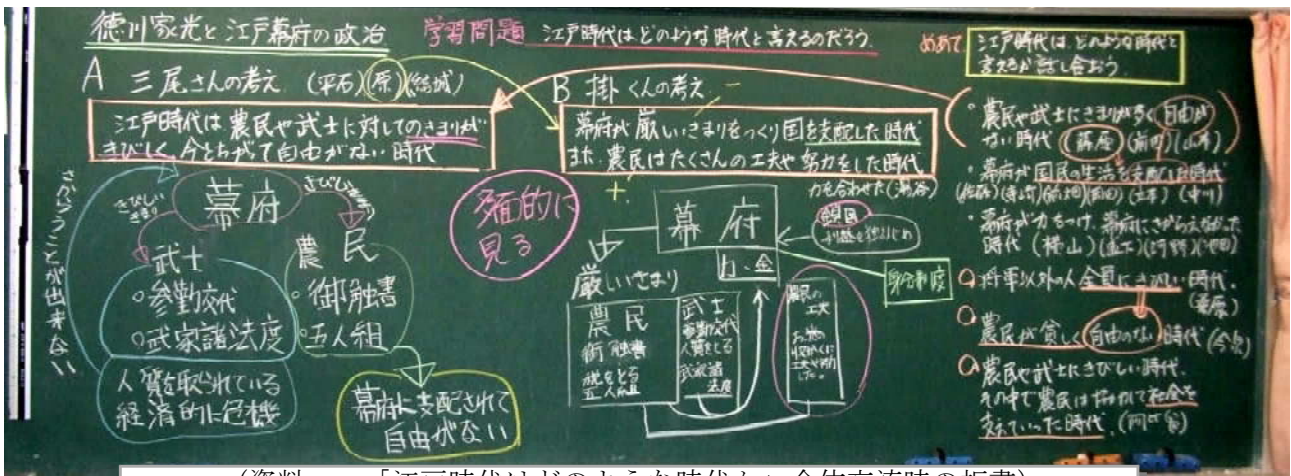 徳川家光と江戸幕府の政治
学習問題 江戸時代はどのような時代と言えるのだろう
めあて
江戸時代は、どのような時代と
言えるか話し合おう
A 三尾さんの考え (平石)(原)(結城)
江戸時代は農民や武士に対してのきまりが
きびしく、今とちがって自由がない時代
さからうことが出来ない
幕府
きびしいきまり
きびしいきまり
武士
○参勤交代
○武家諸法度
人質を取られている
経済的に危機
農民
○御触書
○五人組
幕府に支配されて
自由がない
多面的に
見る
B 掛くんの考え
幕府が厳しいきまりをつくり国を支配した時代
また、農民はたくさんの工夫や努力をした時代
力を合わせた
幕府
力・金
鎖国
利益を独りじめ
身分制度
厳しいきまり
農民
御触書
税をとる
五人組
武士
参勤交代
人質をとる
武家諸法度
農民の
工夫
・農民や武士にきまりが多く自由が
ない時代 (藤原)(前田)(山本)
・幕府が国民の生活を支配した時代
(中川)
・幕府が力をつけ、幕府にさからえなかった
時代 (横山)
将軍以外の人全員にきびしい時代
農民が貧しく自由のない時代
農民や武士にきびしい時代
その中で農民は 社会を
支えていった時代
(資料 「江戸時代はどのような時代か」全体交流時の板書)